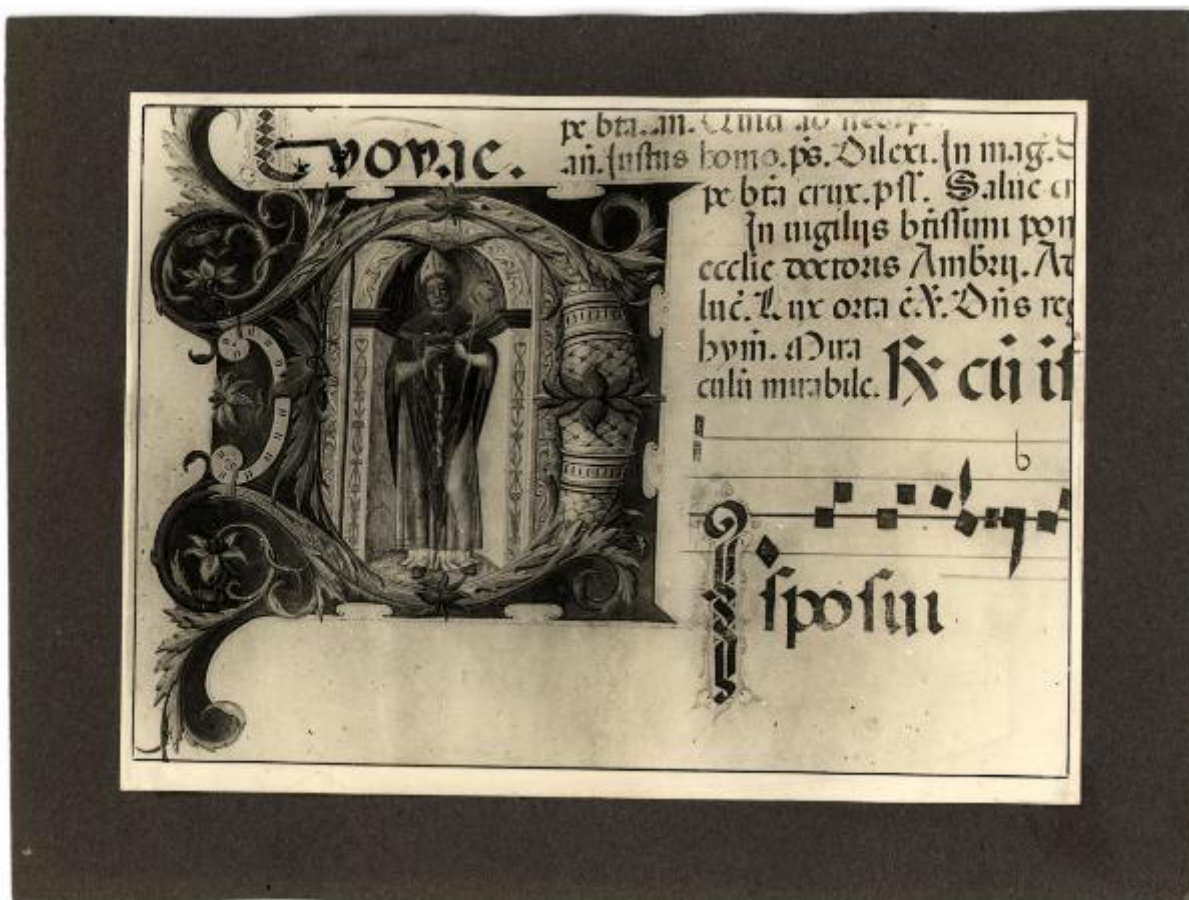 Evovae.
pe bta. an.
an. Iustus homo. ps. Dilexi. In mag.
pe bta crux. pss. Salue
In uigilijs btissimi pon
ecclie doctoris Ambrij. A
luc. Lux orta e. V. Dns reg
hym. Mira
culu mirabile. Rx cu
isposiu